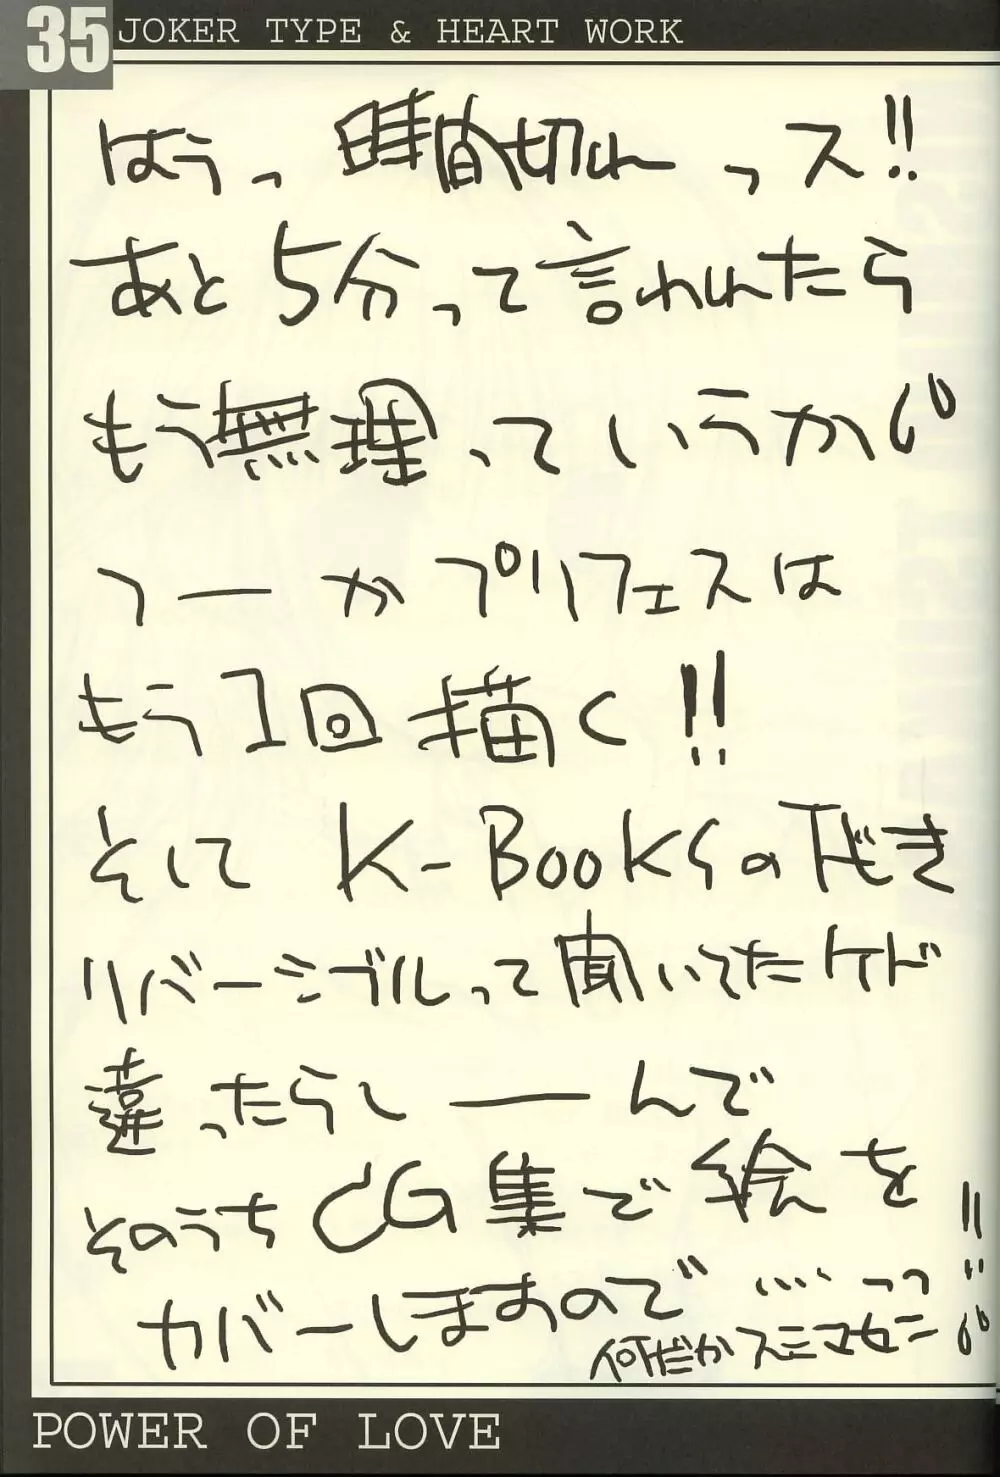 35 JOKER TYPE & HEART WORK
はうっ 時間切れ っス!!
あと 5分って言われたら
もう無理っていうか。
つーか プリフェスは
もう1回 描く!!
そして K-BOOKSの下どき
リバーシブルって聞いてたケド
違ったらし――んで
そのうち CG集で絵を
カバーしますので ‥‥っっ!!
何だかスミマセン。
POWER OF LOVE